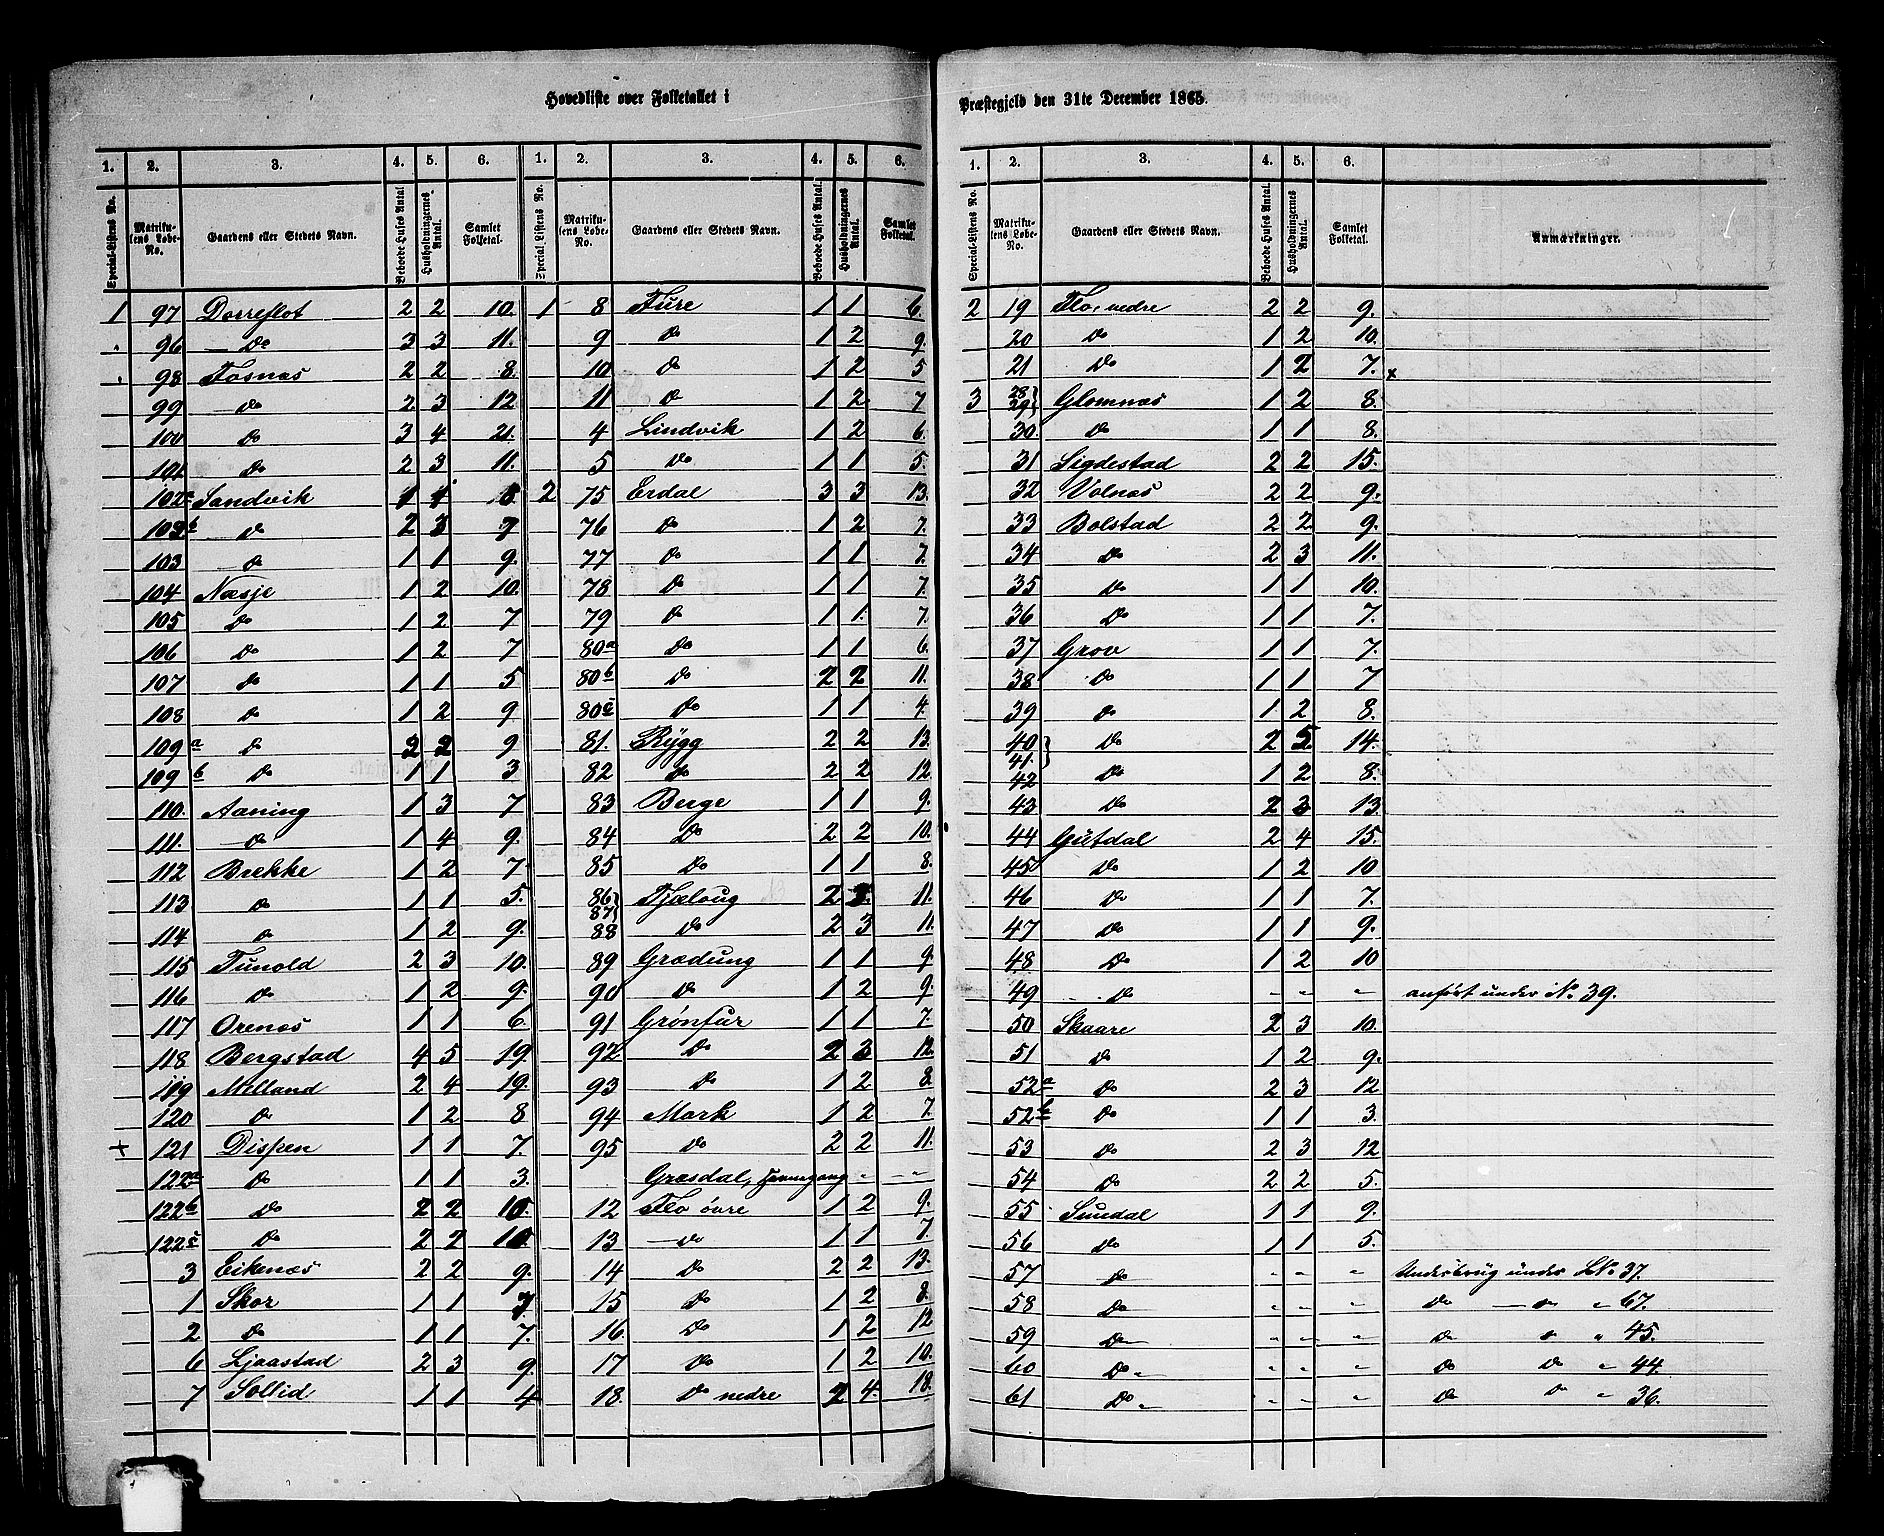 Hovedliste over Folketallet i
1. 2. 3. 4. 5. 6. 1. 2. 3. 4. 5. 6.
Special-Listens No. Matrikulens Løbe-No. Gaardens eller Stedets Navn. Beboede Huses Antal Husholdningernes Antal. Samlet Folketal. Special Listens No. Matrikulens Løbe-No. Gaardens eller Stedets Navn. Beboede Huses Antal. Husholdningernes Antal. Samlet Folketal.
1 97 Dorreflot 2 2 10. 1 8 Fure 1 1 6.
96 – Do 3 3 11. 9 Do 1 2 9.
98 Fosnæs 2 2 8. 10 Do 1 2 5
99 – Do 2 3 12 11 Do 1 2 7
100 Do 3 4 21. 4 Lindvik 1 2 6.
101 Do 2 3 11. 5 Do 1 1 5.
102a Sandvik 1 1 2 75 Erdal 3 3 13.
102b Do 2 3 7 76 Do 1 2 7.
103 – Do 1 1 9. 77 Do 1 1 7.
104 Næsje 1 2 10. 78 Do 1 1 7.
105 Do 1 2 7 79 Do 1 1. 7.
106 Do 1 2 7 80a Do 1 1 6.
107 Do 1 1 5 80b Do 2 2 11.
108 Do 1 2 9 80c Do 1 1 4.
109a Do 2 2 9 81. Rygg 2 2 13.
109b Do 1 1 3 82 Do 2 2 12.
110. Aaning 1 3 7 83 Berge 1 1 9.
111. – Do 1 4 9. 84 Do 2 2 10.
112 Brekke 1 2 7 85 Do 1 1 8.
113 Do 1 1 5. 86 87 Tjælaug 2 11.
114 Do 1 2 9. 88 Do 2 3 11.
115 Tunold 2 3 10. 89 Grædung 1 1 9.
116 Do 1 2 9. 90 Do 1 2 9.
117 Orenæs 1 1 6. 91 Grønfur 1 1 7.
118 Bergstad 4 5 19. 92 Do 2 3 12.
119 Melland 2 4 19. 93 Do 1 2 8.
120 Do 1 2 8 94 Mork 1 2 7.
+ 121 Dispen 1 1 7. 95 Do 2 2 11.
122a Do 1 1 3. Græsdal, - - -
122b Do 2 2 10. 12 Flo øvre 1 2 9.
122c Do 2 2 10. 13 – Do 1 1 7.
3 Eikenæs 2 2 9. 14 Do 2 2 13.
1 Skor 1 1 7. 15 Do 1 2 8.
2 Do 1 1 7. 16. Do 1 2 12
6 Ljaastad 2 3 9. 17 Do 1 2 10.
7 Sollid 1 1 4 18. Do nedre 2 4. 18.
Præstegjeld den 31te December 1865.
1. 2. 3. 4. 5. 6.
Special-Listens No. Matrikulens Løbe-No. Gaardens eller Stedets Navn. Beboede Huses Antal. Husholdningernes Antal. Samlet Folketal. Anmærkninger.
2 19 Flo, nedre 2 2 9.
20 Do 1 2 10.
21 Do 1 2 7. x
3 28 29 Glomnæs 1 2 8.
30. Do 1 1 8.
31 Sigdestad 2 2 15.
32 Volnæs 2 2 9.
33 Bolstad 2 2 9.
34 Do 2 3 11.
35 Do 1 1 10.
36 Do 1 1 7.
37 Grov 1 1 7.
38 Do 1 1 7
39 Do 1 2 8.
40 41. Do 2 5 14.
42 Do 1 2 8.
43 Do 2 3 13.
44 Gutdal 2 4 15.
45 Do 1 2 10
46 Do 1 1 7.
47 Do 1 1 9.
48 Do 1 2 10
49 Do - - - anført under No 39.
50 Skaare 2 3 10.
51 Do 1 2 9.
52a Do 2 3 12
52b Do 1 1 3.
53 Do 2 3 12
54 Do 2 2 5.
55 Sundal 1 1 9.
56 Do 1 1 5.
57 Do - - - Underbrug under LNo 37.
58 Do - - - Do – Do - 67.
59 Do - - - Do Do - 45.
60 Do - - - Do Do - 44.
61 Do - - - Do Do - 36.